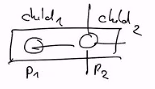 child₁ child₂
P₁ P₂